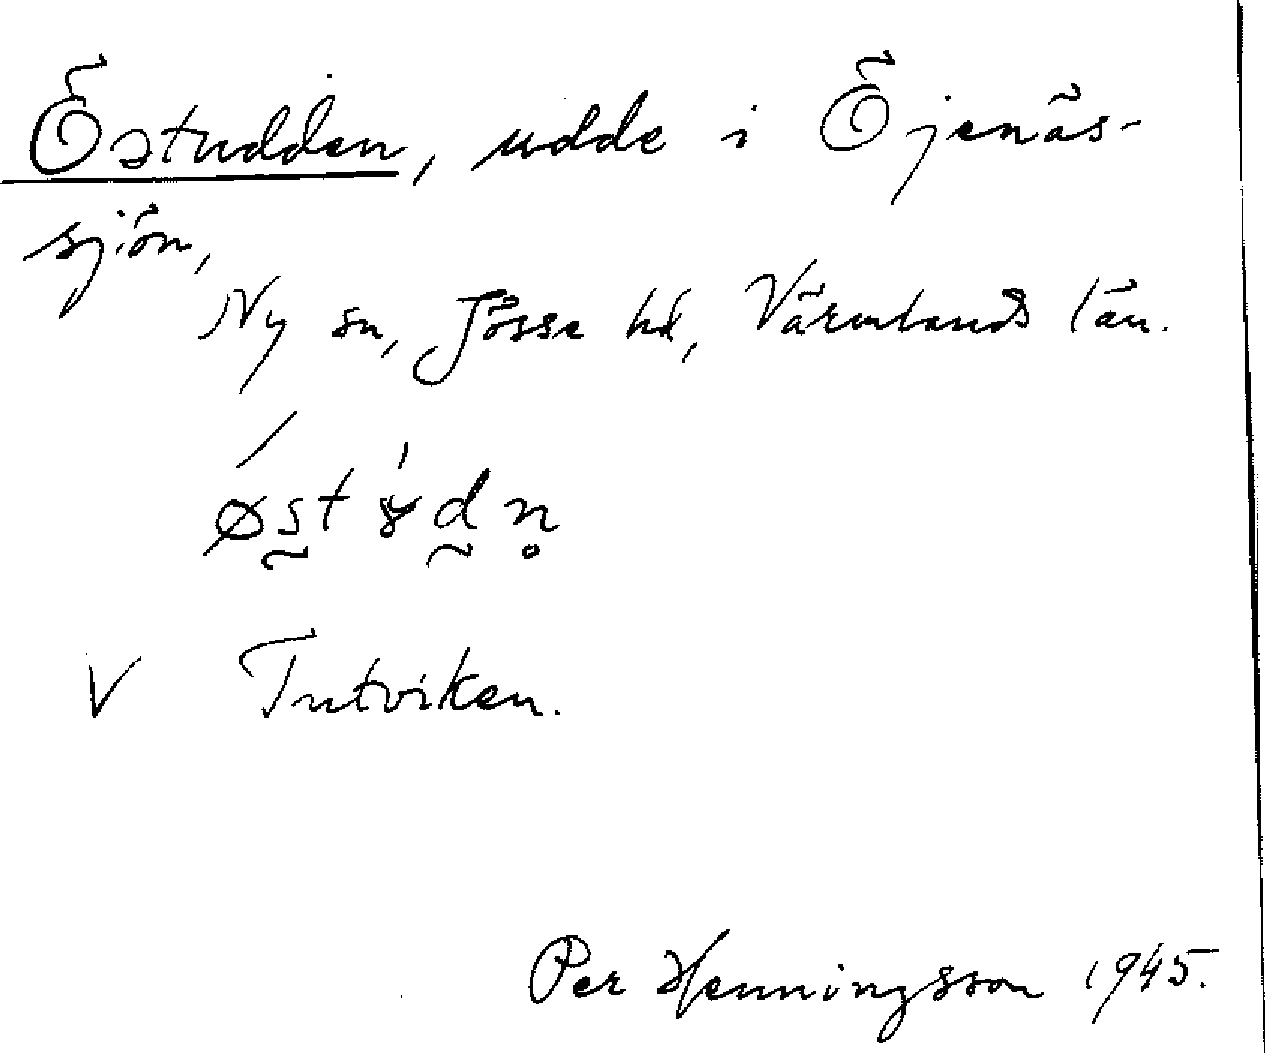 Östudden, udde i Öjenäs-
sjön,
Ny sn, Jösse hd, Värmlands län.
østɤ́dn̥
V Tutviken.
Per Henningsson 1945.